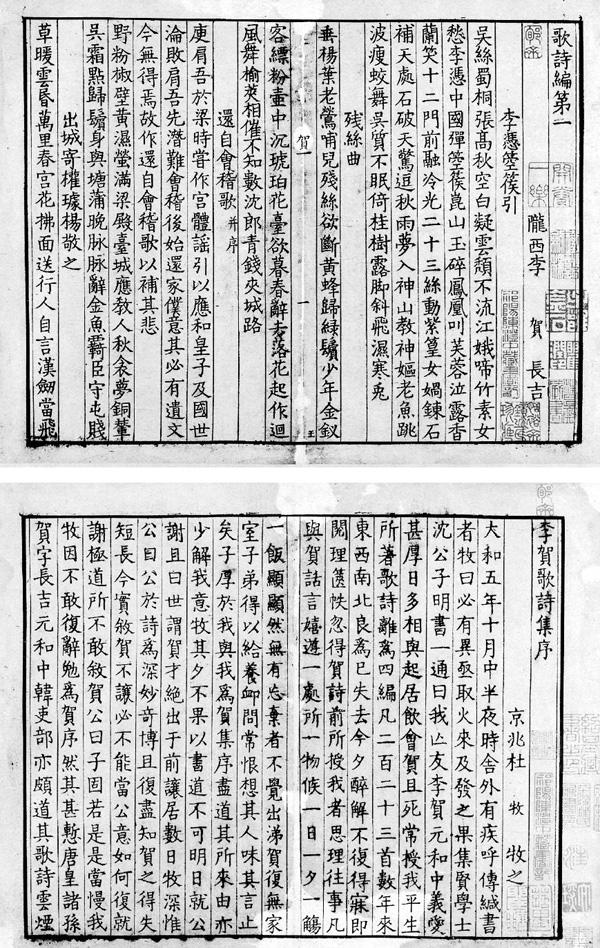 歌詩編第一
隴西李 賀 長吉
李憑箜篌引
吳絲蜀桐張髙秋空白凝雲頹不流江娥啼竹素女
愁李憑中國彈箜篌崑山玉碎鳳凰叫芙蓉泣露香
蘭笑十二門前融冷光二十三絲動紫篁女媧鍊石
補天處石破天驚逗秋雨夢入神山教神嫗老魚跳
波瘦蛟舞吳質不眠倚桂樹露脚斜飛濕寒兎
残絲曲
垂楊葉老鶯哺兒殘絲欲斷黄蜂歸綠鬢少年金釵
賀一
一
王
客縹粉壷中沉琥珀花臺欲暮春辭去落花起作迴
風舞榆莢相催不知數沈郎青錢夾城路
還自會稽歌 并序
庾肩吾於梁時嘗作宫體謡引以應和皇子及國世
淪敗肩吾先潛難會稽後始還家僕意其必有遺文
今無得焉故作還自會稽歌以補其悲
野粉椒壁黄濕螢滿梁殿臺城應教人秋衾夢銅輦
吳霜點歸鬢身與塘蒲晚脉脉辭金魚羈臣守屯賤
出城寄權璩楊敬之
草暖雲昏萬里春宫花拂面送行人自言漢劎當飛
李賀歌詩集序
京兆杜 牧 牧之
大和五年十月中半夜時舍外有疾呼傳緘書
者牧曰必有異亟取火來及發之果集賢學士
沈公子明書一通曰我亡友李賀元和中義愛
甚厚日夕相與起居飲食賀且死常授我平生
所著歌詩離爲四編凡二百二十三首數年來
東西南北良爲已失去今夕醉解不復得寐即
閱理篋帙忽得賀詩前所授我者思理往事凡
與賀話言嬉遊一處所一物候一日一夕一觴
一飯顯顯然無有忘棄者不覺出涕賀復無家
室子弟得以給養卹問常恨想其人味其言止
矣子厚於我與我爲賀集序盡道其所來由亦
少解我意牧其夕不果以書道不可明日就公
謝且曰世謂賀才絶出于前讓居數日牧深惟
公曰公於詩爲深妙奇博且復盡知賀之得失
短長今實敘賀不讓必不能當公意如何復就
謝極道所不敢敘賀公曰子固若是是當慢我
牧因不敢復辭勉爲賀序然其甚慙唐皇諸孫
賀字長吉元和中韓吏部亦頗道其歌詩雲煙